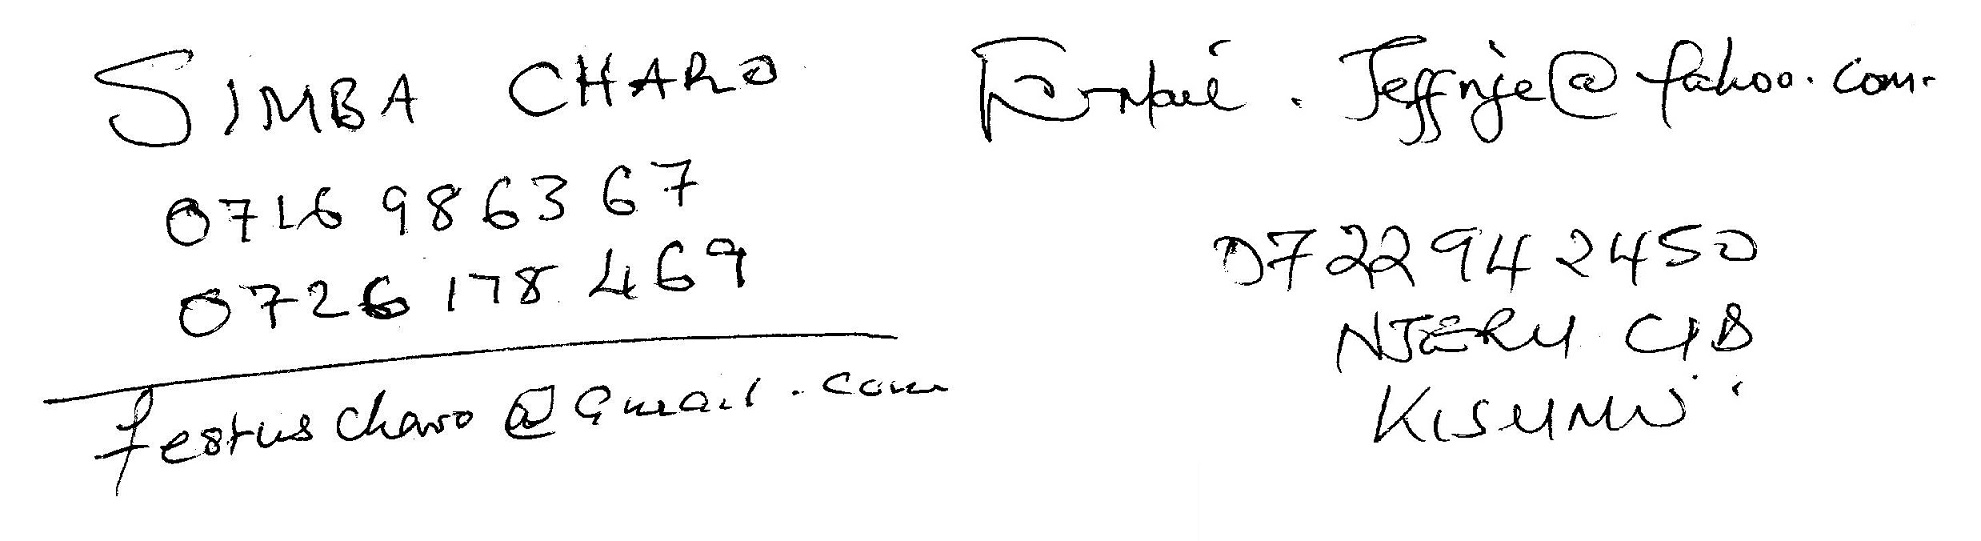 SIMBA CHARO
0716 986367
0726 178 469
festus charo @ Gmail.com
E-mail. Jeffnje@yahoo.com.
0722942450
NJERU CIB
KISUMU